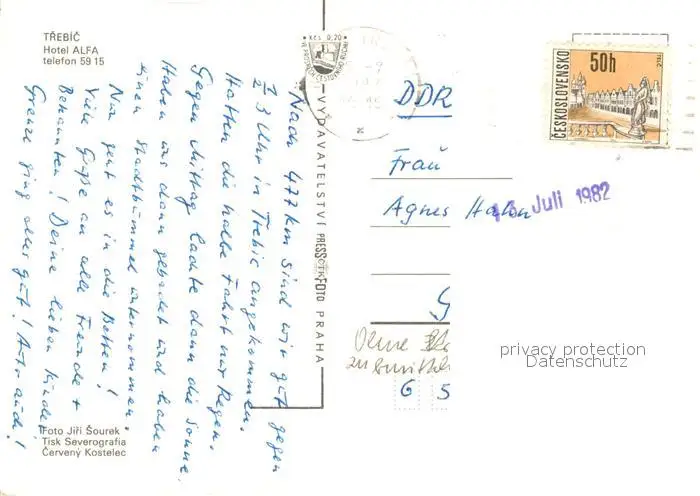 TŘEBÍČ
Hotel ALFA
telefon 59 15
Nach 477 km sind wir gut gegen
½ 3 Uhr in Trebic angekommen.
Hatten die halbe Fahrt nur Regen.
Gegen Mittag lachte dann die Sonne.
Haben uns dann gebadet und haben
einen Stadtbummel unternommen.
Nun geht es in die Betten!
Viele Grüße an alle Freunde +
Bekannten! Deine lieben Kinder
Grenze ging alles gut! Auto auch!
Foto Jiří Šourek
Tisk Severografia
Červený Kostelec
Kčs 0,20
VYDAVATELSTVÍ PRESSFOTO PRAHA
ČESKOSLOVENSKO
50h
TELČ
DDR
Frau
Agnes
Juli 1982
G
Ohne
zu
6 5
privacy protection
Datenschutz